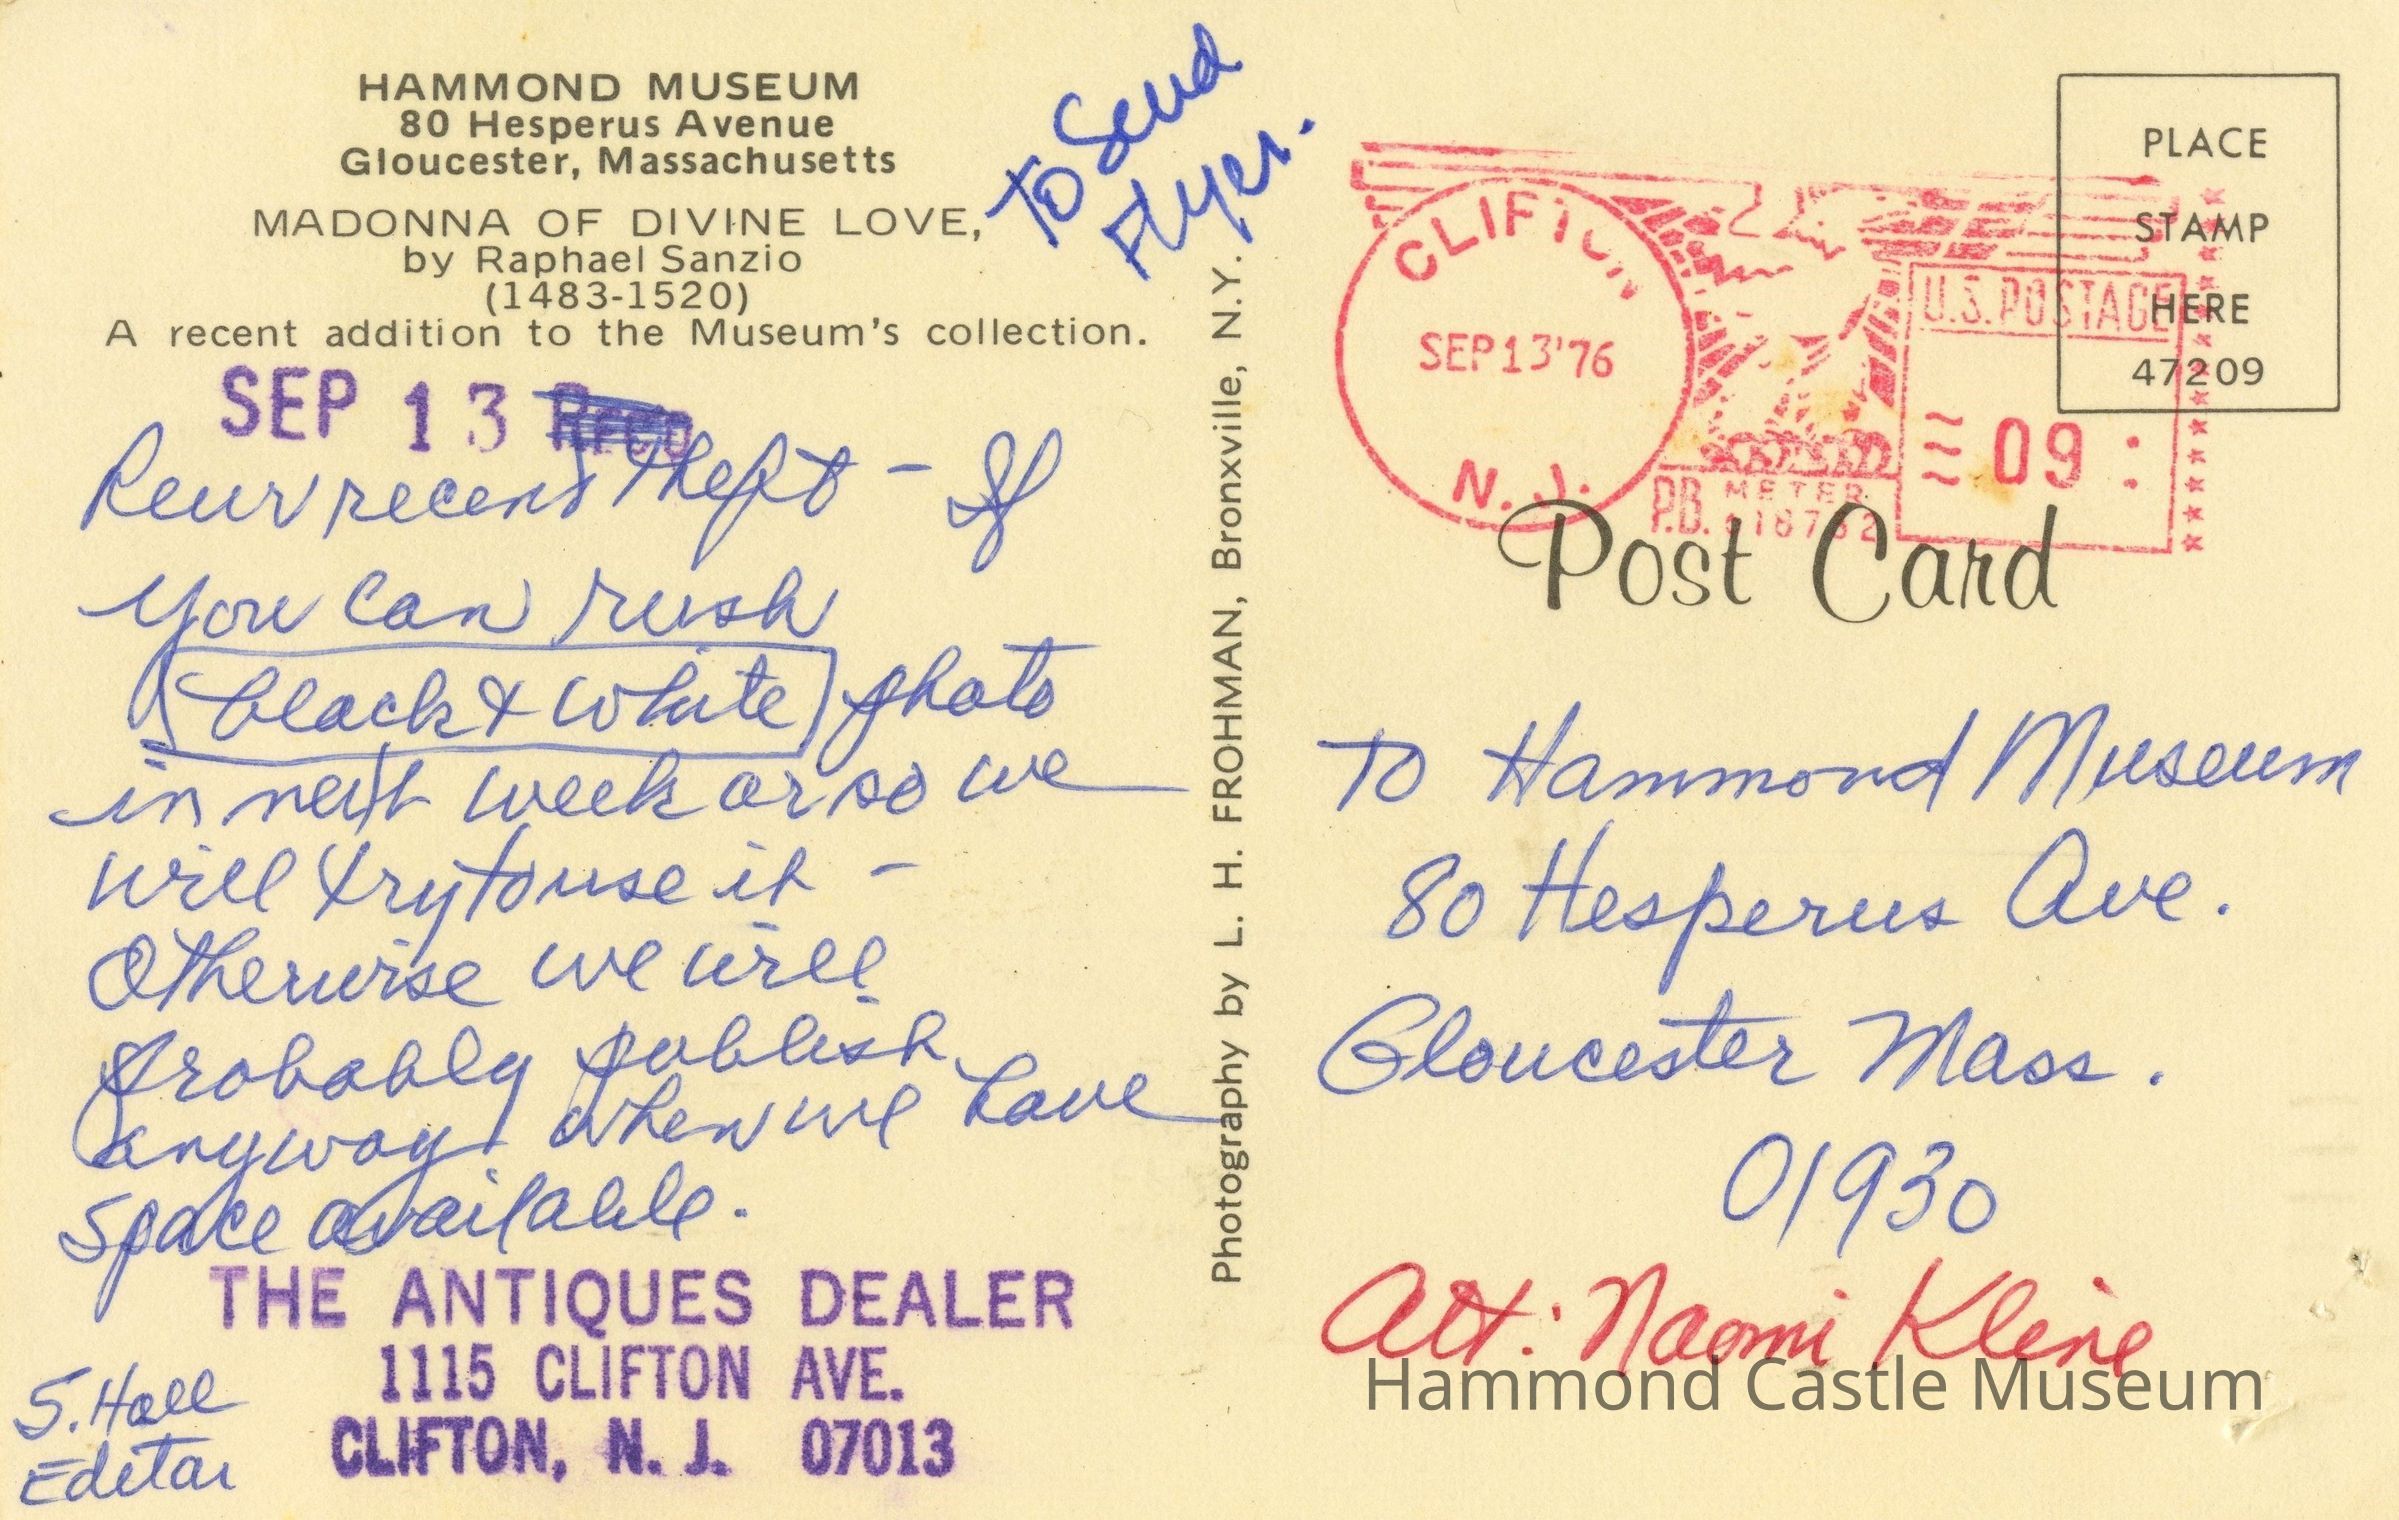 HAMMOND MUSEUM
80 Hesperus Avenue
Gloucester, Massachusetts
MADONNA OF DIVINE LOVE,
by Raphael Sanzio
(1483-1520)
A recent addition to the Museum's collection.
To Send
Flyer.
SEP 13
Reur recent theft - If
you can rush
black & white photo
in next week or so we
will try to use it -
Otherwise we will
probably publish
anyway when we have
space available.
THE ANTIQUES DEALER
1115 CLIFTON AVE.
CLIFTON, N. J. 07013
S. Hall
Editor
Photography by L. H. FROHMAN, Bronxville, N.Y.
CLIFTON
SEP 13 '76
N. J.
U.S. POSTAGE
09
P.B. METER
PLACE
STAMP
HERE
47209
Post Card
To Hammond Museum
80 Hesperus Ave.
Gloucester Mass.
01930
Att: Naomi Kline
Hammond Castle Museum